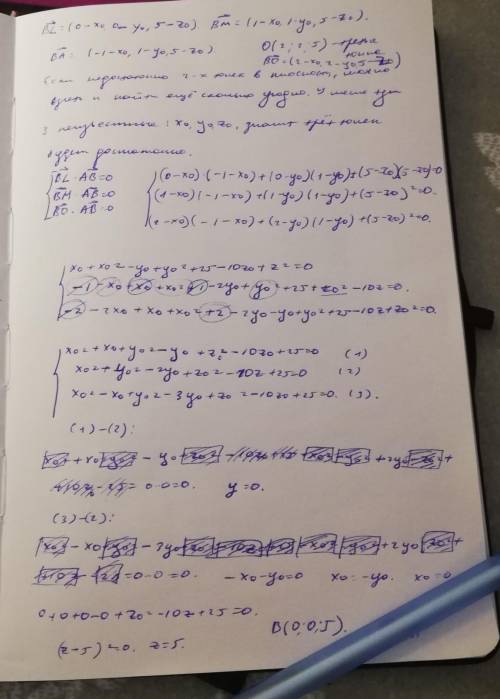 BL = (0-x0, 0-y0, 5-z0). BM = (1-x0, 1-y0, 5-z0).
BA = (-1-x0, 1-y0, 5-z0). O(2; 2; 5) -
BO = (2-x0, 2-y0, 5-z0)
недостаточно 2-х точек в плоскости, можно
взять и найти ещё сколько угодно. У меня
3 неизвестные: x0, y0, z0, значит трёх точек
будет достаточно.
{ BL · AB = 0
BM · AB = 0
BO · AB = 0
{ (0-x0)(-1-x0)+(0-y0)(1-y0)+(5-z0)(5-z0)=0
(1-x0)(-1-x0)+(1-y0)(1-y0)+(5-z0)²=0.
(2-x0)(-1-x0)+(2-y0)(1-y0)+(5-z0)²=0.
{ x0+x0²-y0+y0²+25-10z0+z²=0
-1-x0+x0+x0²+1-2y0+y0²+25+z0²-10z=0.
-2-2x0+x0+x0²+2-2y0-y0+y0²+25-10z+z0²=0.
{ x0²+x0+y0²-y0+z0²-10z0+25=0 (1)
x0²+y0²-2y0+z0²-10z+25=0 (2)
x0²-x0+y0²-3y0+z0²-10z0+25=0. (3).
(1)-(2):
+x0 - y0 +2y0
= 0-0=0. y=0.
(3)-(2):
-x0 -3y0 +2y0
=0-0=0. -x0-y0=0 x0=-y0. x0=0
0+0+0-0+z0²-10z+25=0.
(z-5)²=0. z=5. B(0;0;5).